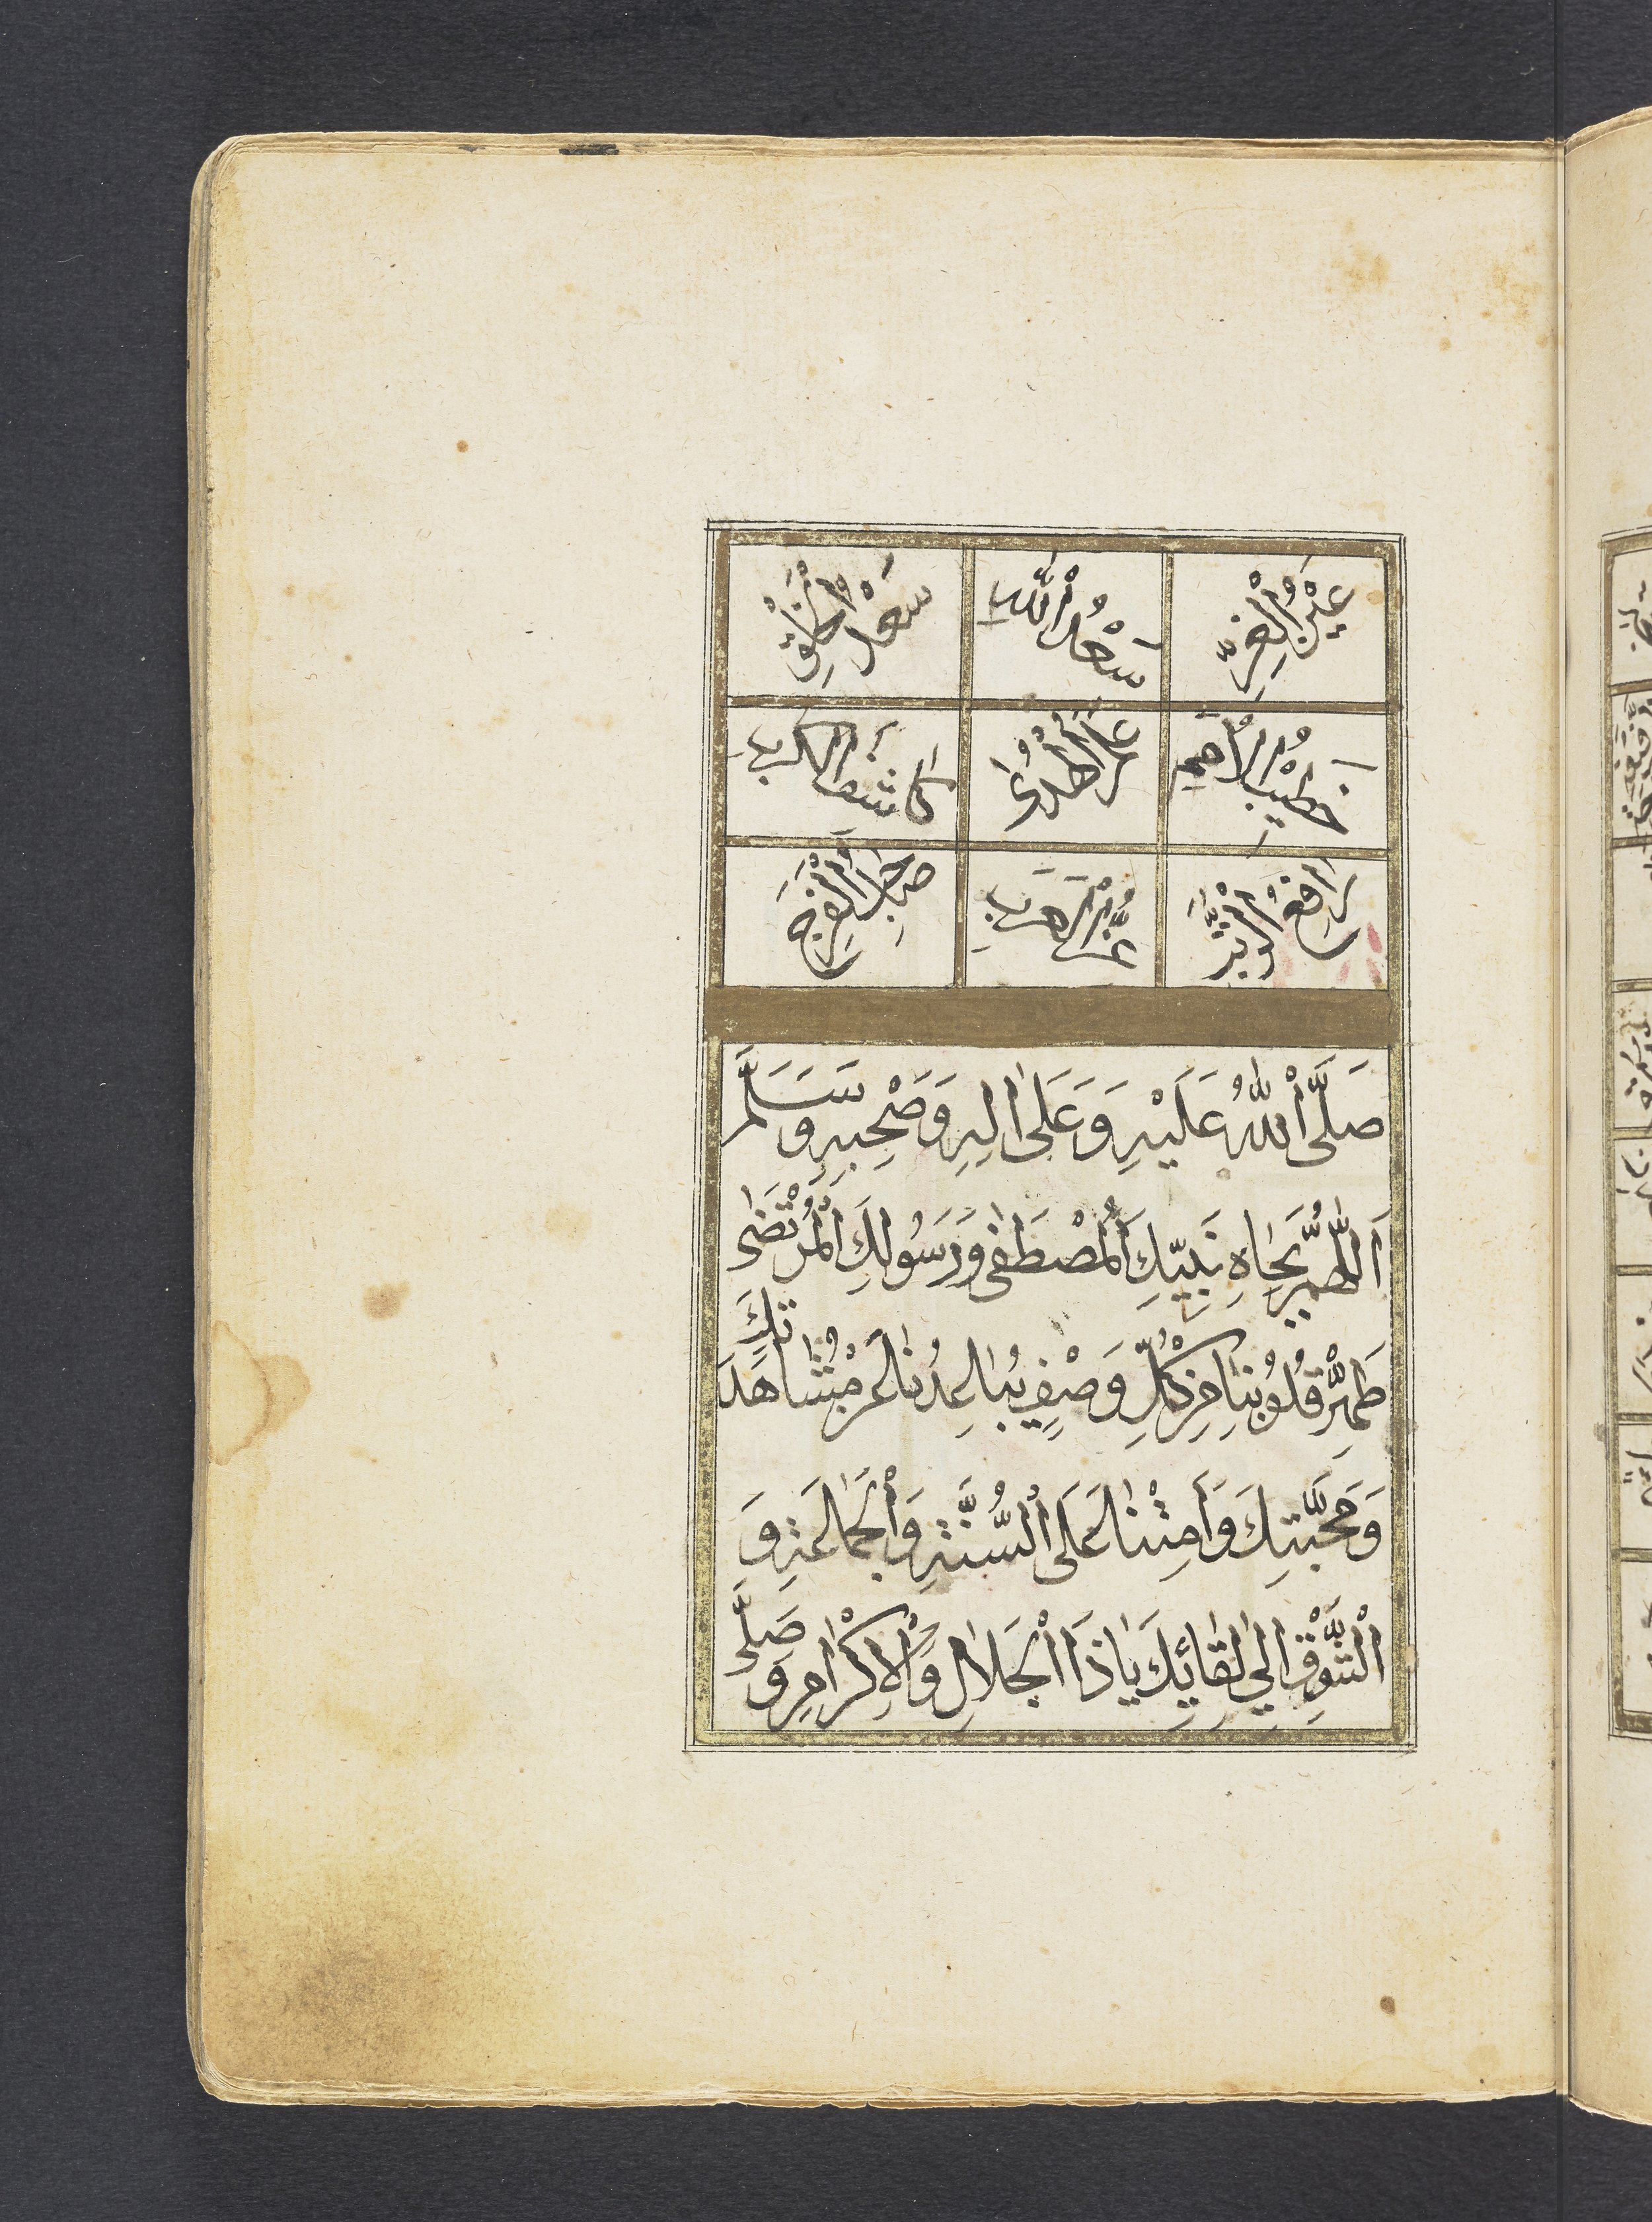 عَيْنُ الْغُرِّ سَعْدُ اللّٰهِ سَعْدُ الْخَلْقِ
خَطِيبُ الْأُمَمِ عَلَمُ الْهُدٰى كَاشِفُ الْكُرَبِ
رَافِعُ الرُّتَبِ عِزُّ الْعَرَبِ صَاحِبُ الْفَرَجِ
صَلَّى اللّٰهُ عَلَيْهِ وَعَلٰى اٰلِهِ وَصَحْبِهِ وَسَلَّمَ
اَللّٰهُمَّ بِجَاهِ نَبِيِّكَ الْمُصْطَفٰى وَرَسُولِكَ الْمُرْتَضٰى
طَهِّرْ قُلُوبَنَا مِنْ كُلِّ وَصْفٍ يُبَاعِدُنَا عَنْ مُشَاهَدَتِكَ
وَمَحَبَّتِكَ وَاَمِتْنَا عَلَى السُّنَّةِ وَالْجَمَاعَةِ وَ
الشَّوْقِ اِلٰى لِقَائِكَ يَا ذَا الْجَلَالِ وَالْاِكْرَامِ وَصَلَّى